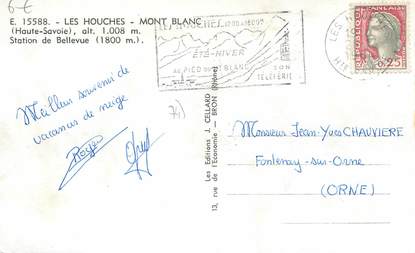 6-€
E. 15588. - LES HOUCHES - MONT BLANC
(Haute-Savoie), alt. 1.008 m.
Station de Bellevue (1800 m.).
LES HOUCHES
ÉTÉ-HIVER
AU PIED DU MT BLANC SON
TÉLÉFÉRIC
FRANÇAISE
0,25
Meilleur souvenir de
vacances de neige
Roger
74)
Les Editions J. CELLARD
13, rue de l'Economie - BRON (Rhône)
Monsieur Jean-Yves CHAUVIERE
Fontenay-sur-Orne
(ORNE)